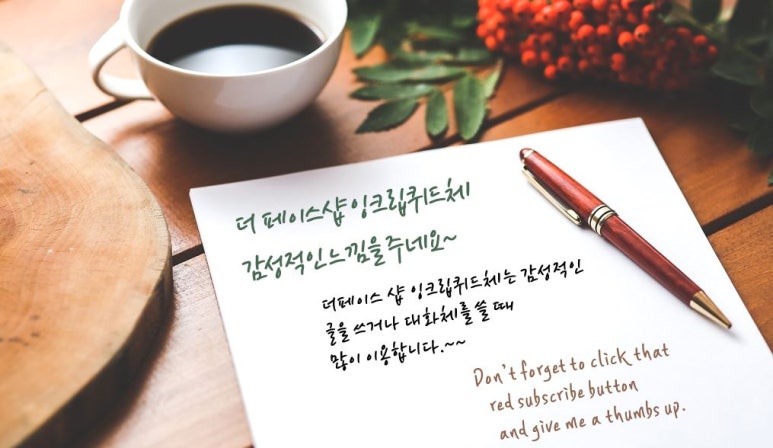 더 페이스샵 잉크립퀴드체
감성적인 느낌을 주네요~
더페이스 샵 잉크립퀴드체는 감성적인
글을 쓰거나 대화체를 쓸 때
많이 이용합니다.~~
Don't forget to click that
red subscribe button
and give me a thumbs up.